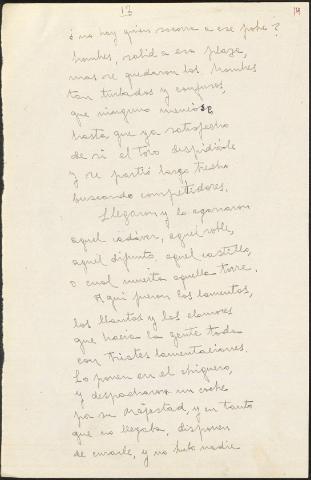 13
19
¿no hay quien socorra a ese pobre?
hombres, salid a esa plaza,
mas se quedaron los hombres
tan turbados y confusos,
que ninguno meneóse
hasta que ya satisfecho
de sí el toro despidióle
y se partió largo trecho
buscando competidores.
Llegaron y lo agarraron
aquel cadáver, aquel roble,
aquel difunto, aquel castillo,
o cual muerta aquella torre.
Aquí fueron los lamentos,
los llantos y los clamores
que hacía la gente toda
con tristes lamentaciones.
Lo ponen en el chiquero,
y despacharon un coche
por su majestad, y en tanto
que no llegaba, disponen
de curarle, y no hubo nadie